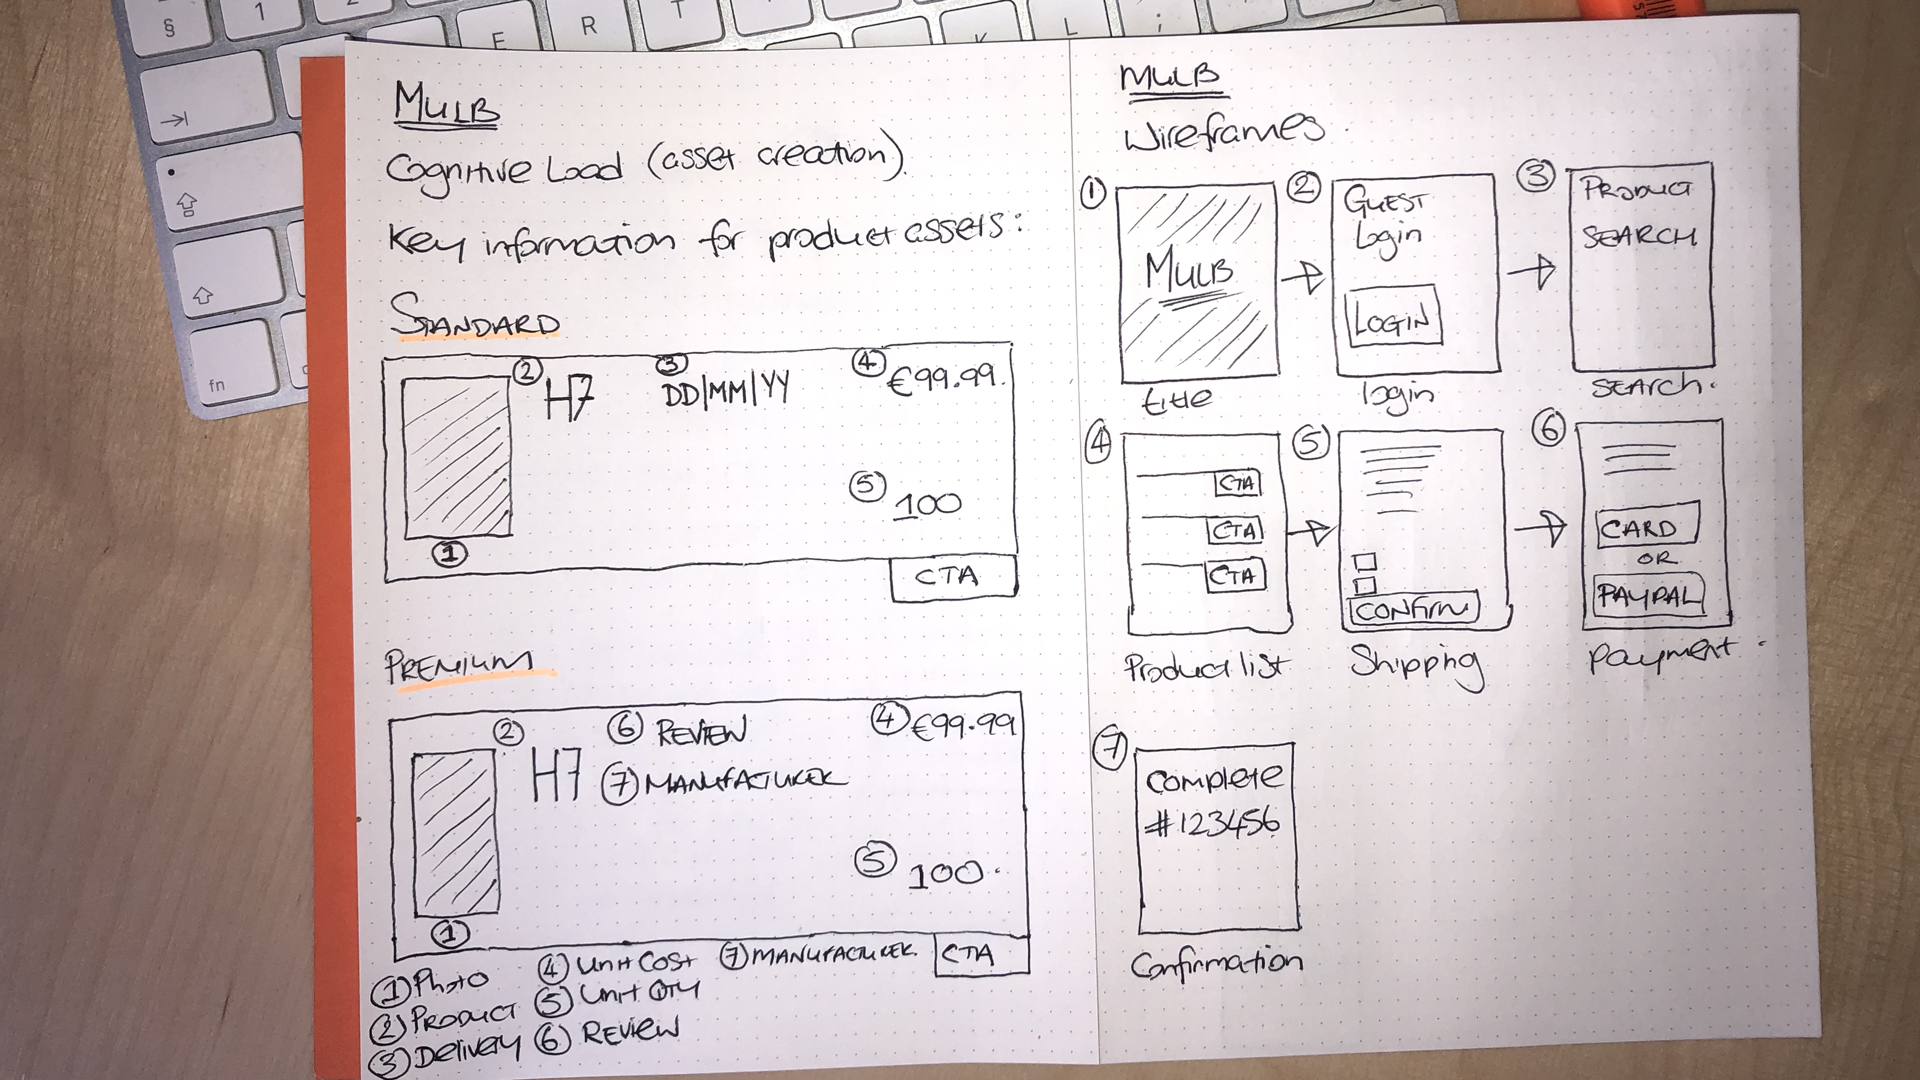 MULB
Cognitive Load (asset creation).
Key information for product assets:
STANDARD
② H7 ③ DD|MM|YY ④ €99.99.
⑤ 100
①
CTA
PREMIUM
② H7 ⑥ REVIEW ④ €99.99
⑦ MANUFACTURER
⑤ 100.
①
CTA
① Photo ④ Unit Cost ⑦ MANUFACTURER
② PRODUCT ⑤ Unit QTY
③ Delivery ⑥ REVIEW
MULB
Wireframes.
①
MULB
title
②
GUEST
Login
LOGIN
login
③
PRODUCT
SEARCH
SEARCH.
④
CTA
CTA
CTA
Product list
⑤
CONFIRM
Shipping
⑥
CARD
OR
PAYPAL
payment.
⑦
Complete
#123456
Confirmation
§
1
E
R
T
K
L
;
fn